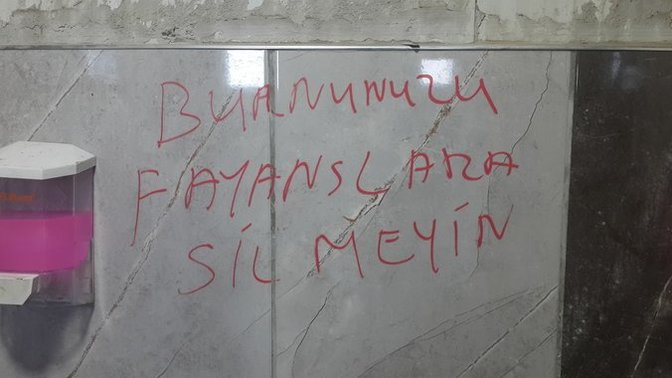 BURNUNUZU
FAYANSLARA
SİLMEYİN